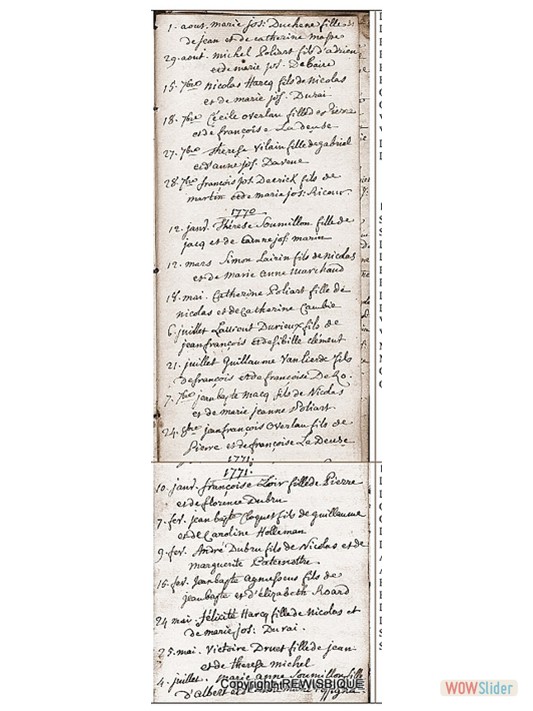 1. aout. marie jos: Duchene fille
de jean et de catherine
29. aout. michel Poliart fils d'adrien
et de marie jos.
15. 7bre nicolas Harcq fils de Nicolas
et de marie jos. Durai
18. 7bre Cécile overlau fille de Pierre
et de françoise La deuse
27. 7bre therese Vilain fille de gabriel
et d'anne jos.
28. 7bre françois jos fils de
martin et de marie jos:
1770
12. janv. Thérese Soumillon fille de
jacq et de jos: marin
12. mars Simon Lairin fils de nicolas
et de Marie Anne Marchand
18. mai. Catherine Poliart fille de
nicolas et de Catherine Cambie
6. juillet Laurent Durieux fils de
jean françois et de sibille clément
21. juillet Guillaume Vanlierde fils
de françois et de françoise De
7. 7bre jean bapte macq fils de Nicolas
et de marie jeanne Poliart
24. jean françois Overlau fils de
Pierre et de françoise La Deuse
1771
1771.
10. janv. françoise Loir fille de Pierre
et de florence Dubru
7. fev. jean bapte Cloquet fils de guillaume
et de Caroline Holleman
9. fev. André Dubru fils de Nicolas et de
marguerite Paternostre
15. fev. Jean bapte fils de
jean bapte et d'élizabeth
24 mai félicité Harcq fille de nicolas et
de marie jos: Durai.
25. mai. Victoire Druet fille de jean
et de therese michel
4. juillet. marie anne Soumillon fille
d'albert et
Copyright REWISBIQUE
WOWSlider